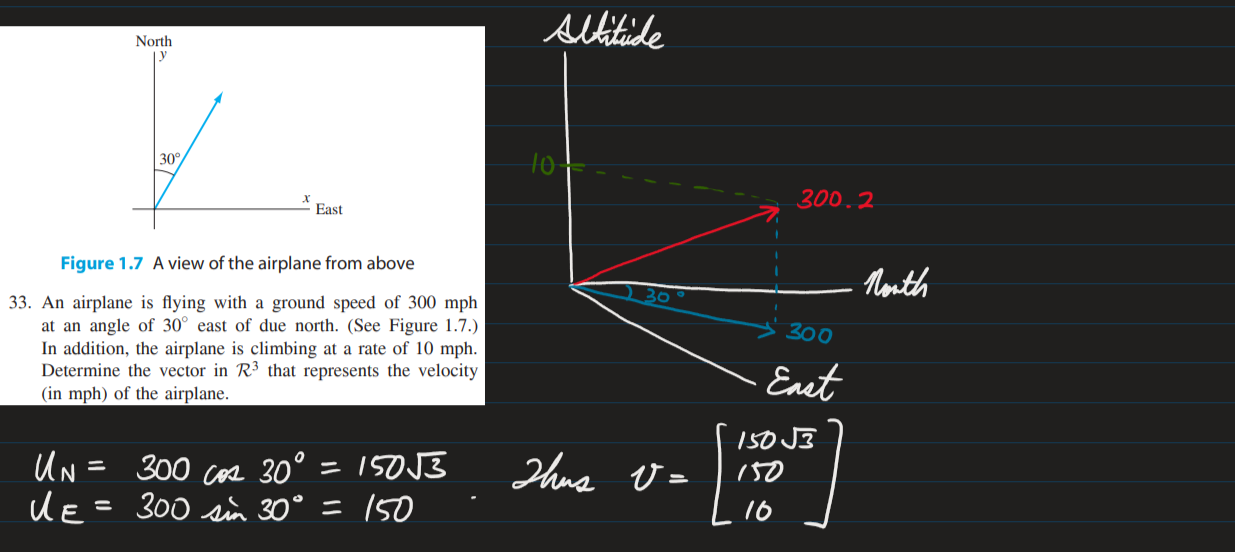 North
y
30°
x
East
Figure 1.7 A view of the airplane from above
33. An airplane is flying with a ground speed of 300 mph
at an angle of 30° east of due north. (See Figure 1.7.)
In addition, the airplane is climbing at a rate of 10 mph.
Determine the vector in R³ that represents the velocity
(in mph) of the airplane.
Altitude
10
300.2
North
30°
300
East
U_N = 300 cos 30° = 150√3
U_E = 300 sin 30° = 150 .
Thus v = [150√3
150
10]